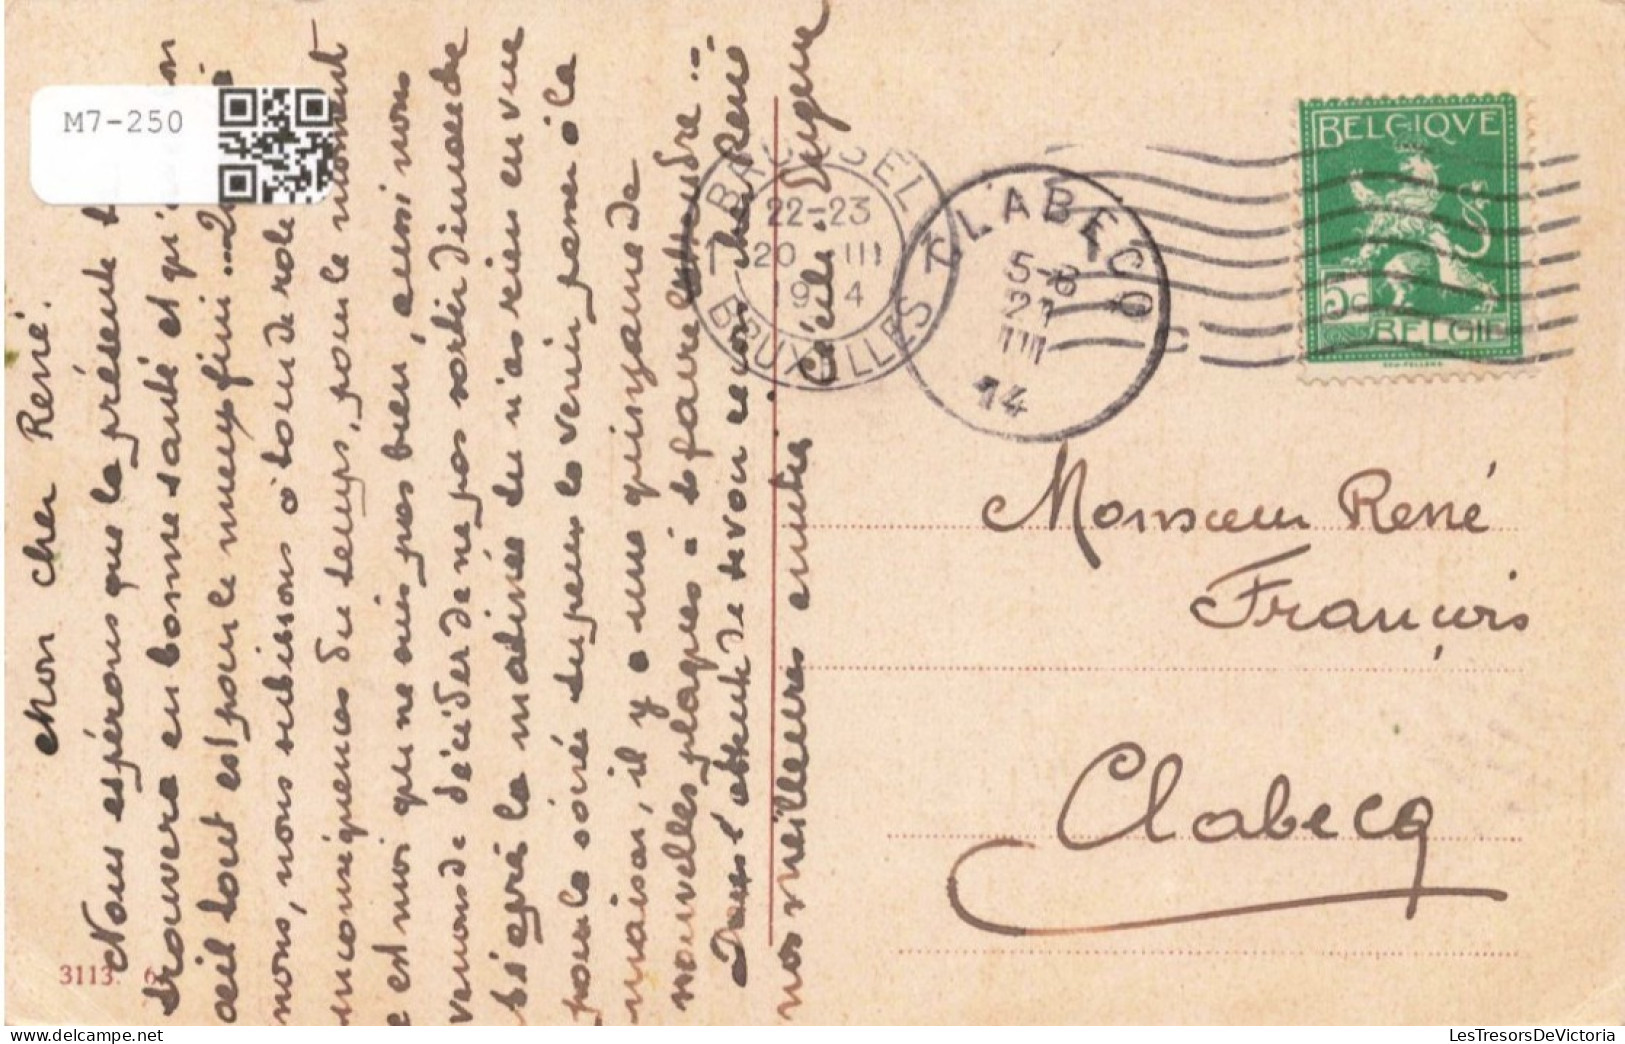 M7-250
Mon cher René.
Nous espérons que la présente
trouvera en bonne santé et qu'
œil tout est pour le mieux fini
nous, nous subissons à tour de role
inconséquences du temps, pour le moment
c'est moi qui ne suis pas bien, aussi nous
venons de décider de ne pas sortir dimanche
si après la matinée tu n'as rien en vue
pour la soirée tu peux la venir passer à la
maison, il y a une quinzaine de
nouvelles plaques à te faire entendre..
Dans l'attente de te voir reçois cher René
nos meilleures amitiés Cécile. Eugène
3113. 6
BRUSSEL
22-23
20 III
19 4
BRUXELLES
CLABECQ
5-6
21
III
14
BELGIQVE
5c
BELGIE
Monsieur René
François
Clabecq
LesTresorsDeVictoria
www.delcampe.net